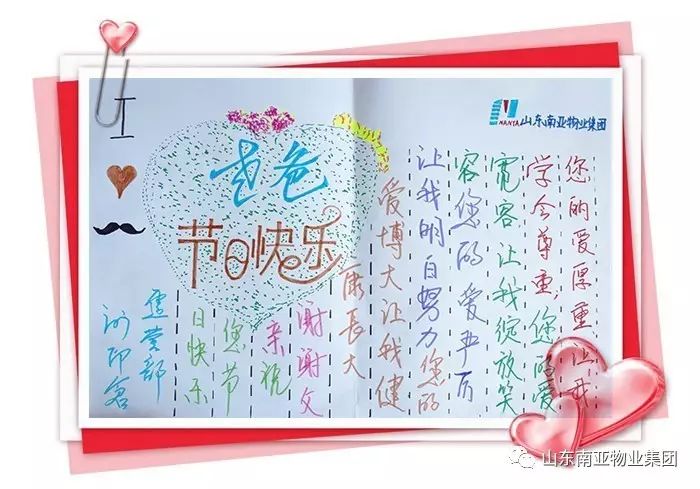 I
老爸
节日快乐
NANYA 山东南亚物业集团
您的爱厚重,让我
学会尊重,您的爱
宽容让我绽放笑
容您的爱严厉
让我明白努力您的
爱博大让我健
康長大
谢谢父
亲祝
您节
日快乐
营部
山东南亚物业集团